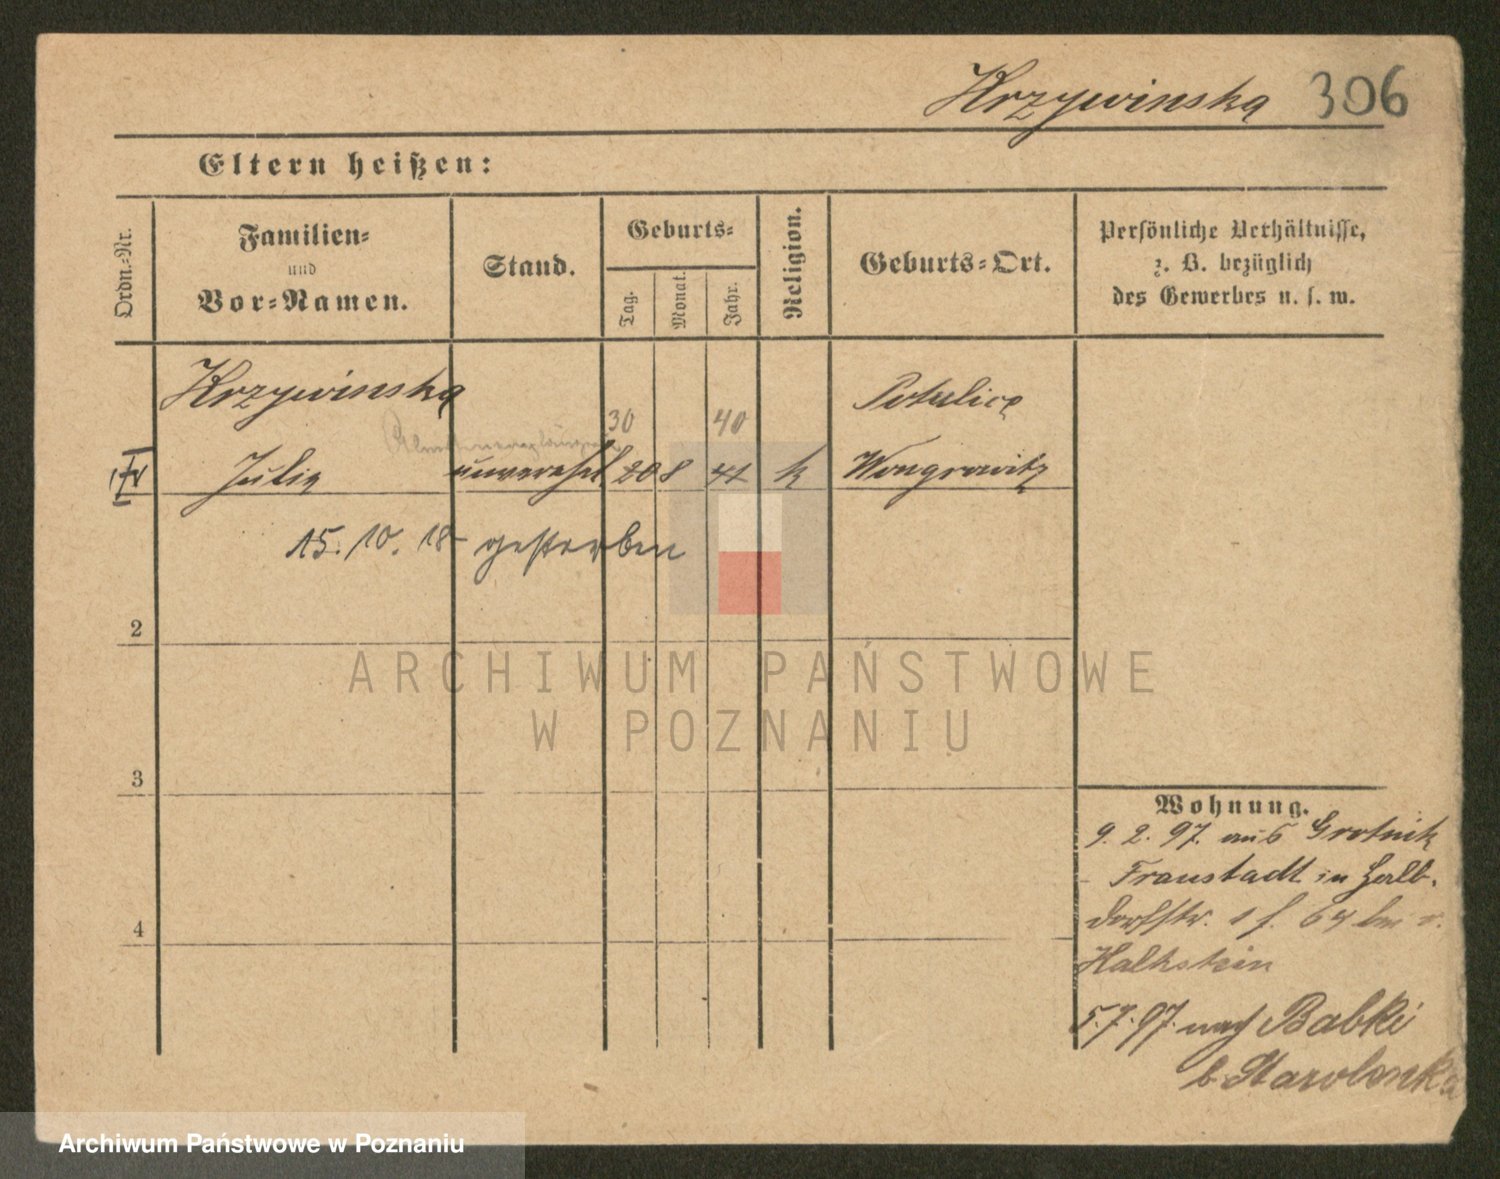 Krzywinska 306
Eltern heißen:
Ordn.-Nr.
Familien-
und
Vor-Namen.
Stand.
Geburts-
Tag.
Monat.
Jahr.
Religion.
Geburts-Ort.
Persönliche Verhältnisse,
z. B. bezüglich
des Gewerbes u. s. w.
Krzywinska
Potulice
30 40
Julia unverehel 20 8 41 k Wongrowitz
15. 10. 18 gestorben
2
3
4
Wohnung.
9. 2. 97. aus Grotnik
Fraustadt in Halb-
dorfstr. 1 f. 64 bei v.
Kalkstein
5. 7. 97. nach Babki
b. Starolenka
ARCHIWUM PAŃSTWOWE
W POZNANIU
Archiwum Państwowe w Poznaniu